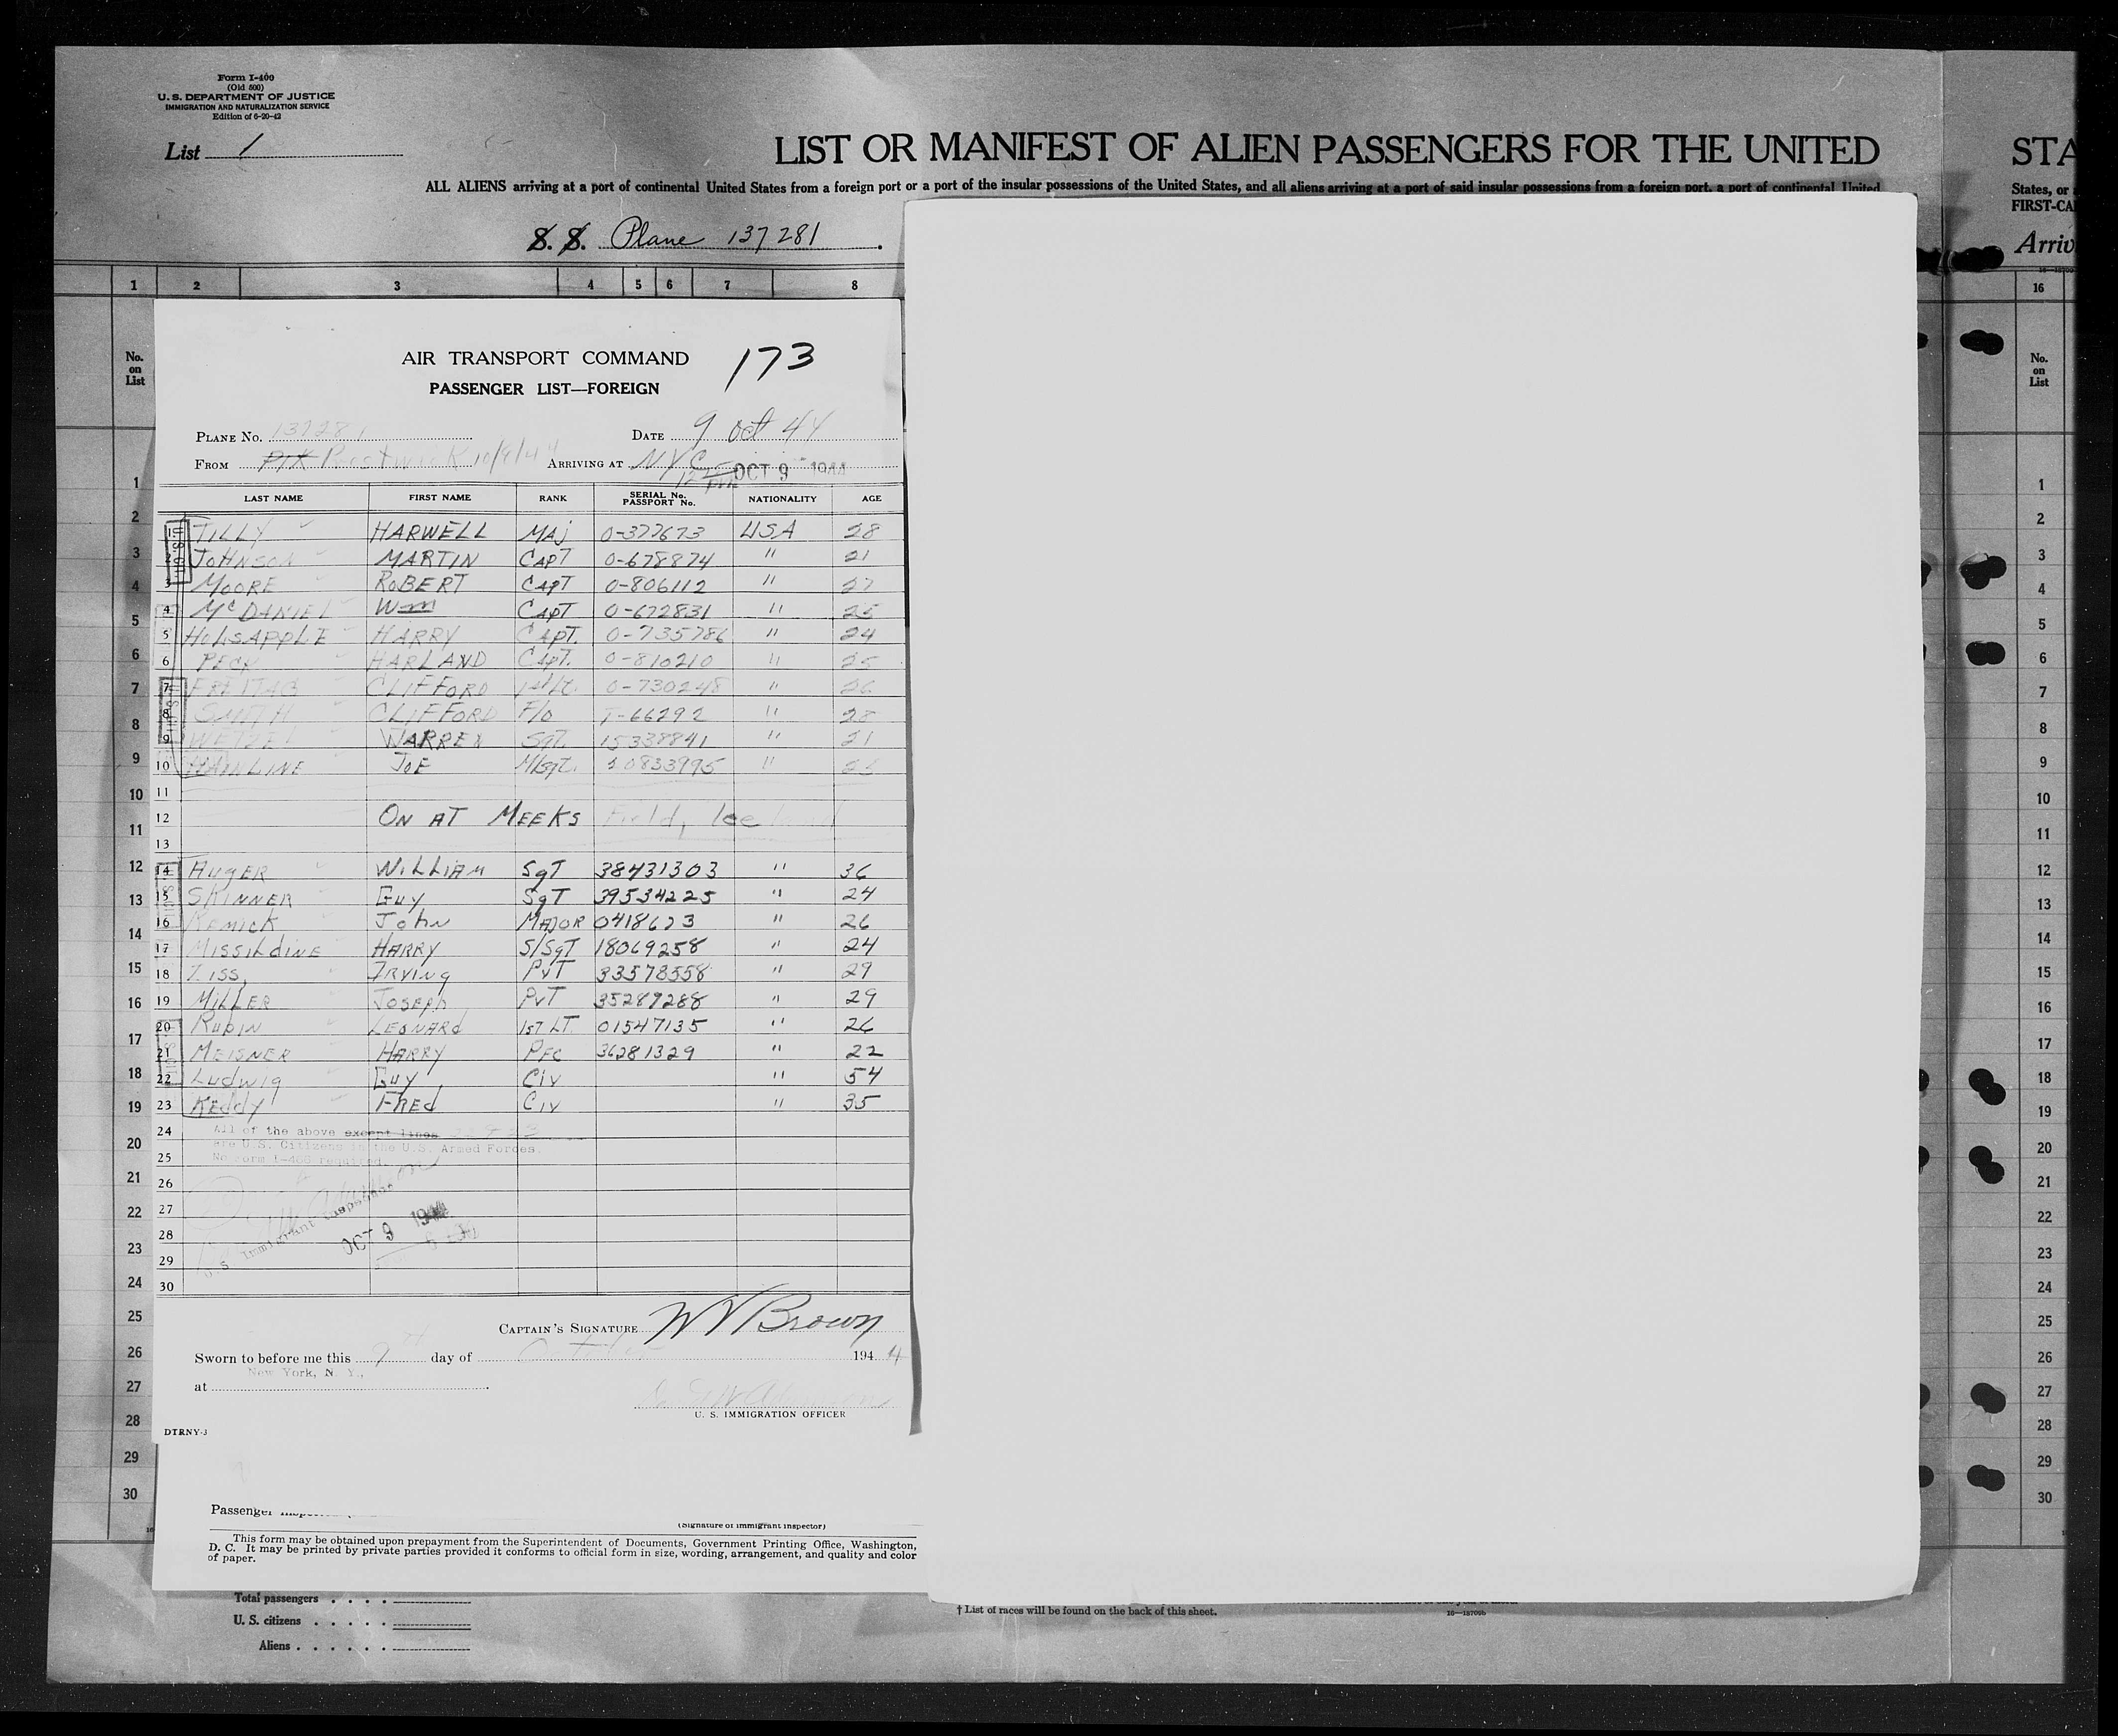 Form I-400
(Old 500)
U. S. DEPARTMENT OF JUSTICE
IMMIGRATION AND NATURALIZATION SERVICE
Edition of 6-20-42
List 1
LIST OR MANIFEST OF ALIEN PASSENGERS FOR THE UNITED
STA
ALL ALIENS arriving at a port of continental United States from a foreign port or a port of the insular possessions of the United States, and all aliens arriving at a port of said insular possessions from a foreign port, a port of continental United
States, or
FIRST-CA
S. S. Plane 137281
Arriv
1 2 3 4 5 6 7 8
16
No. on List
No. on List
AIR TRANSPORT COMMAND 173
PASSENGER LIST—FOREIGN
PLANE NO. 137281 DATE 9 Oct 44
FROM PIK Prestwick 10/8/44 ARRIVING AT NYC OCT 9 1944
LAST NAME FIRST NAME RANK SERIAL No. PASSPORT No. NATIONALITY AGE
1 TILLY HARWELL MAJ 0-377673 USA 28
2 JOHNSON MARTIN CAPT 0-678874 " 21
3 MOORE ROBERT CAPT 0-806112 " 27
4 McDANIEL Wm CAPT 0-672831 " 25
5 HOLSAPPLE HARRY CAPT. 0-735786 " 24
6 PECK HARLAND CAPT. 0-810210 " 25
7 FREITAG CLIFFORD 1st Lt. 0-730248 " 26
8 SMITH CLIFFORD F/O T-66292 " 28
9 WETZEL WARREN Sgt. 15338841 " 21
10 HAINLINE JOE M/Sgt. 10833995 " 25
11
12 ON AT MEEKS Field, Iceland
13
14 AUGER WILLIAM SgT 38431303 " 36
15 SKINNER Guy SgT 39534225 " 24
16 REMICK John MAJOR 0418623 " 26
17 MISSILDINE HARRY S/SgT 18069258 " 24
18 ZISS IRVING PvT 33578558 " 29
19 MILLER JOSEPH PvT 35289288 " 29
20 RUBIN LEONARD 1ST LT. 01547135 " 26
21 MEISNER HARRY PFC 36281329 " 22
22 Ludwig Guy Civ " 54
23 KEddy FREd Civ " 35
24 All of the above except lines 22 & 23
are U.S. Citizens in the U.S. Armed Forces.
25 No form I-466 required.
26
U.S. Immigrant Inspector
27
OCT 9 1944
28
29
30
CAPTAIN'S SIGNATURE W V Brown
Sworn to before me this 9th day of October 1944
New York, N. Y.,
at
U. S. IMMIGRATION OFFICER
DTRNY-3
Passenger
(Signature of immigrant inspector)
This form may be obtained upon prepayment from the Superintendent of Documents, Government Printing Office, Washington,
D. C. It may be printed by private parties provided it conforms to official form in size, wording, arrangement, and quality and color
of paper.
Total passengers
U. S. citizens
Aliens
† List of races will be found on the back of this sheet.
16—18709b
1 1
2 2
3 3
4 4
5 5
6 6
7 7
8 8
9 9
10 10
11 11
12 12
13 13
14 14
15 15
16 16
17 17
18 18
19 19
20 20
21 21
22 22
23 23
24 24
25 25
26 26
27 27
28 28
29 29
30 30